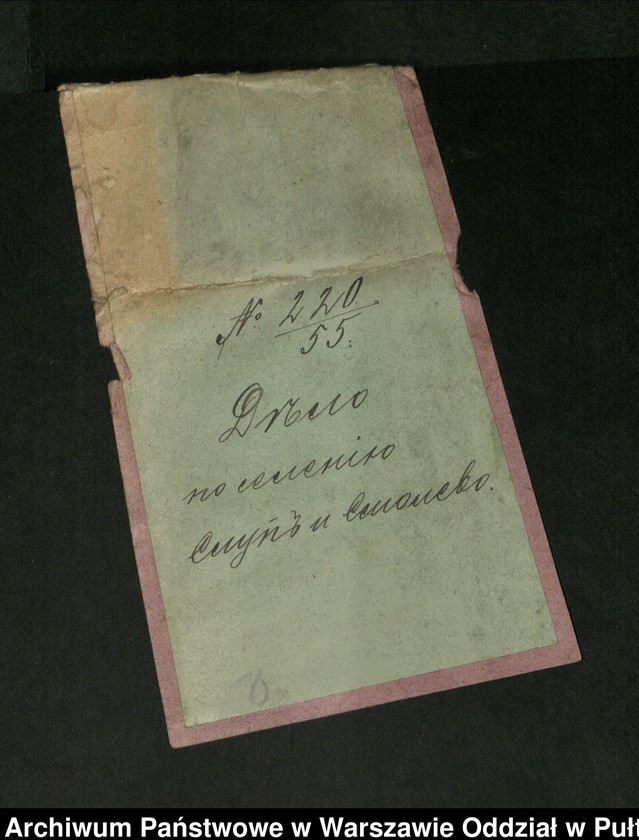 № 220
55.
Дѣло
по селенію
Слупъ и Смолево.
Archiwum Państwowe w Warszawie Oddział w Puł